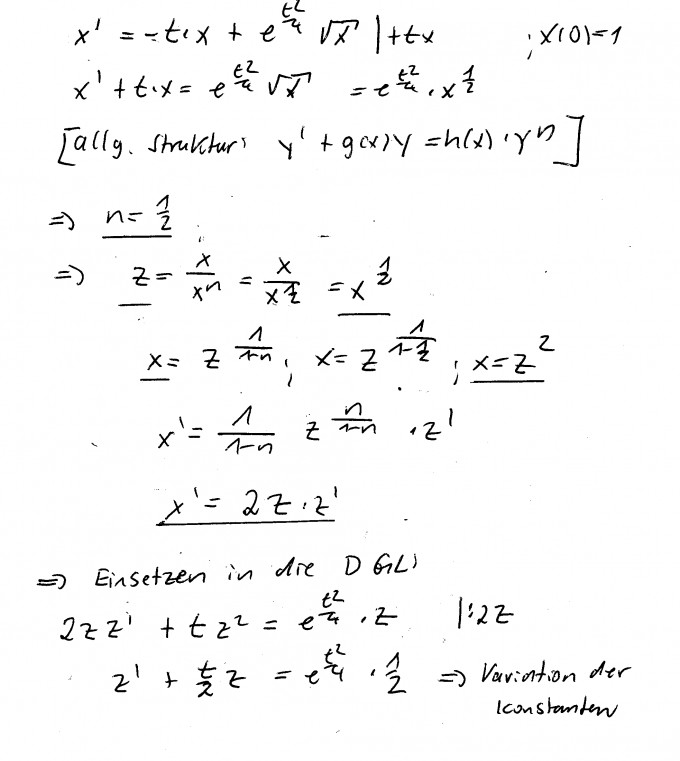 x' = -t·x + e^(t²/4) √x | +tx ; x(0)=1
x' + t·x = e^(t²/4) √x = e^(t²/4) · x^(1/2)
[allg. Struktur: y' + g(x)y = h(x)·y^n]
=> n = 1/2
=> z = x/x^n = x/x^(1/2) = x^(1/2)
x = z^(1/(1-n)) ; x = z^(1/(1-1/2)) ; x = z^2
x' = 1/(1-n) z^(n/(1-n)) · z'
x' = 2z·z'
=> Einsetzen in die DGL:
2zz' + tz² = e^(t²/4) · z |:2z
z' + t/2 z = e^(t²/4) · 1/2 => Variation der
Konstanten